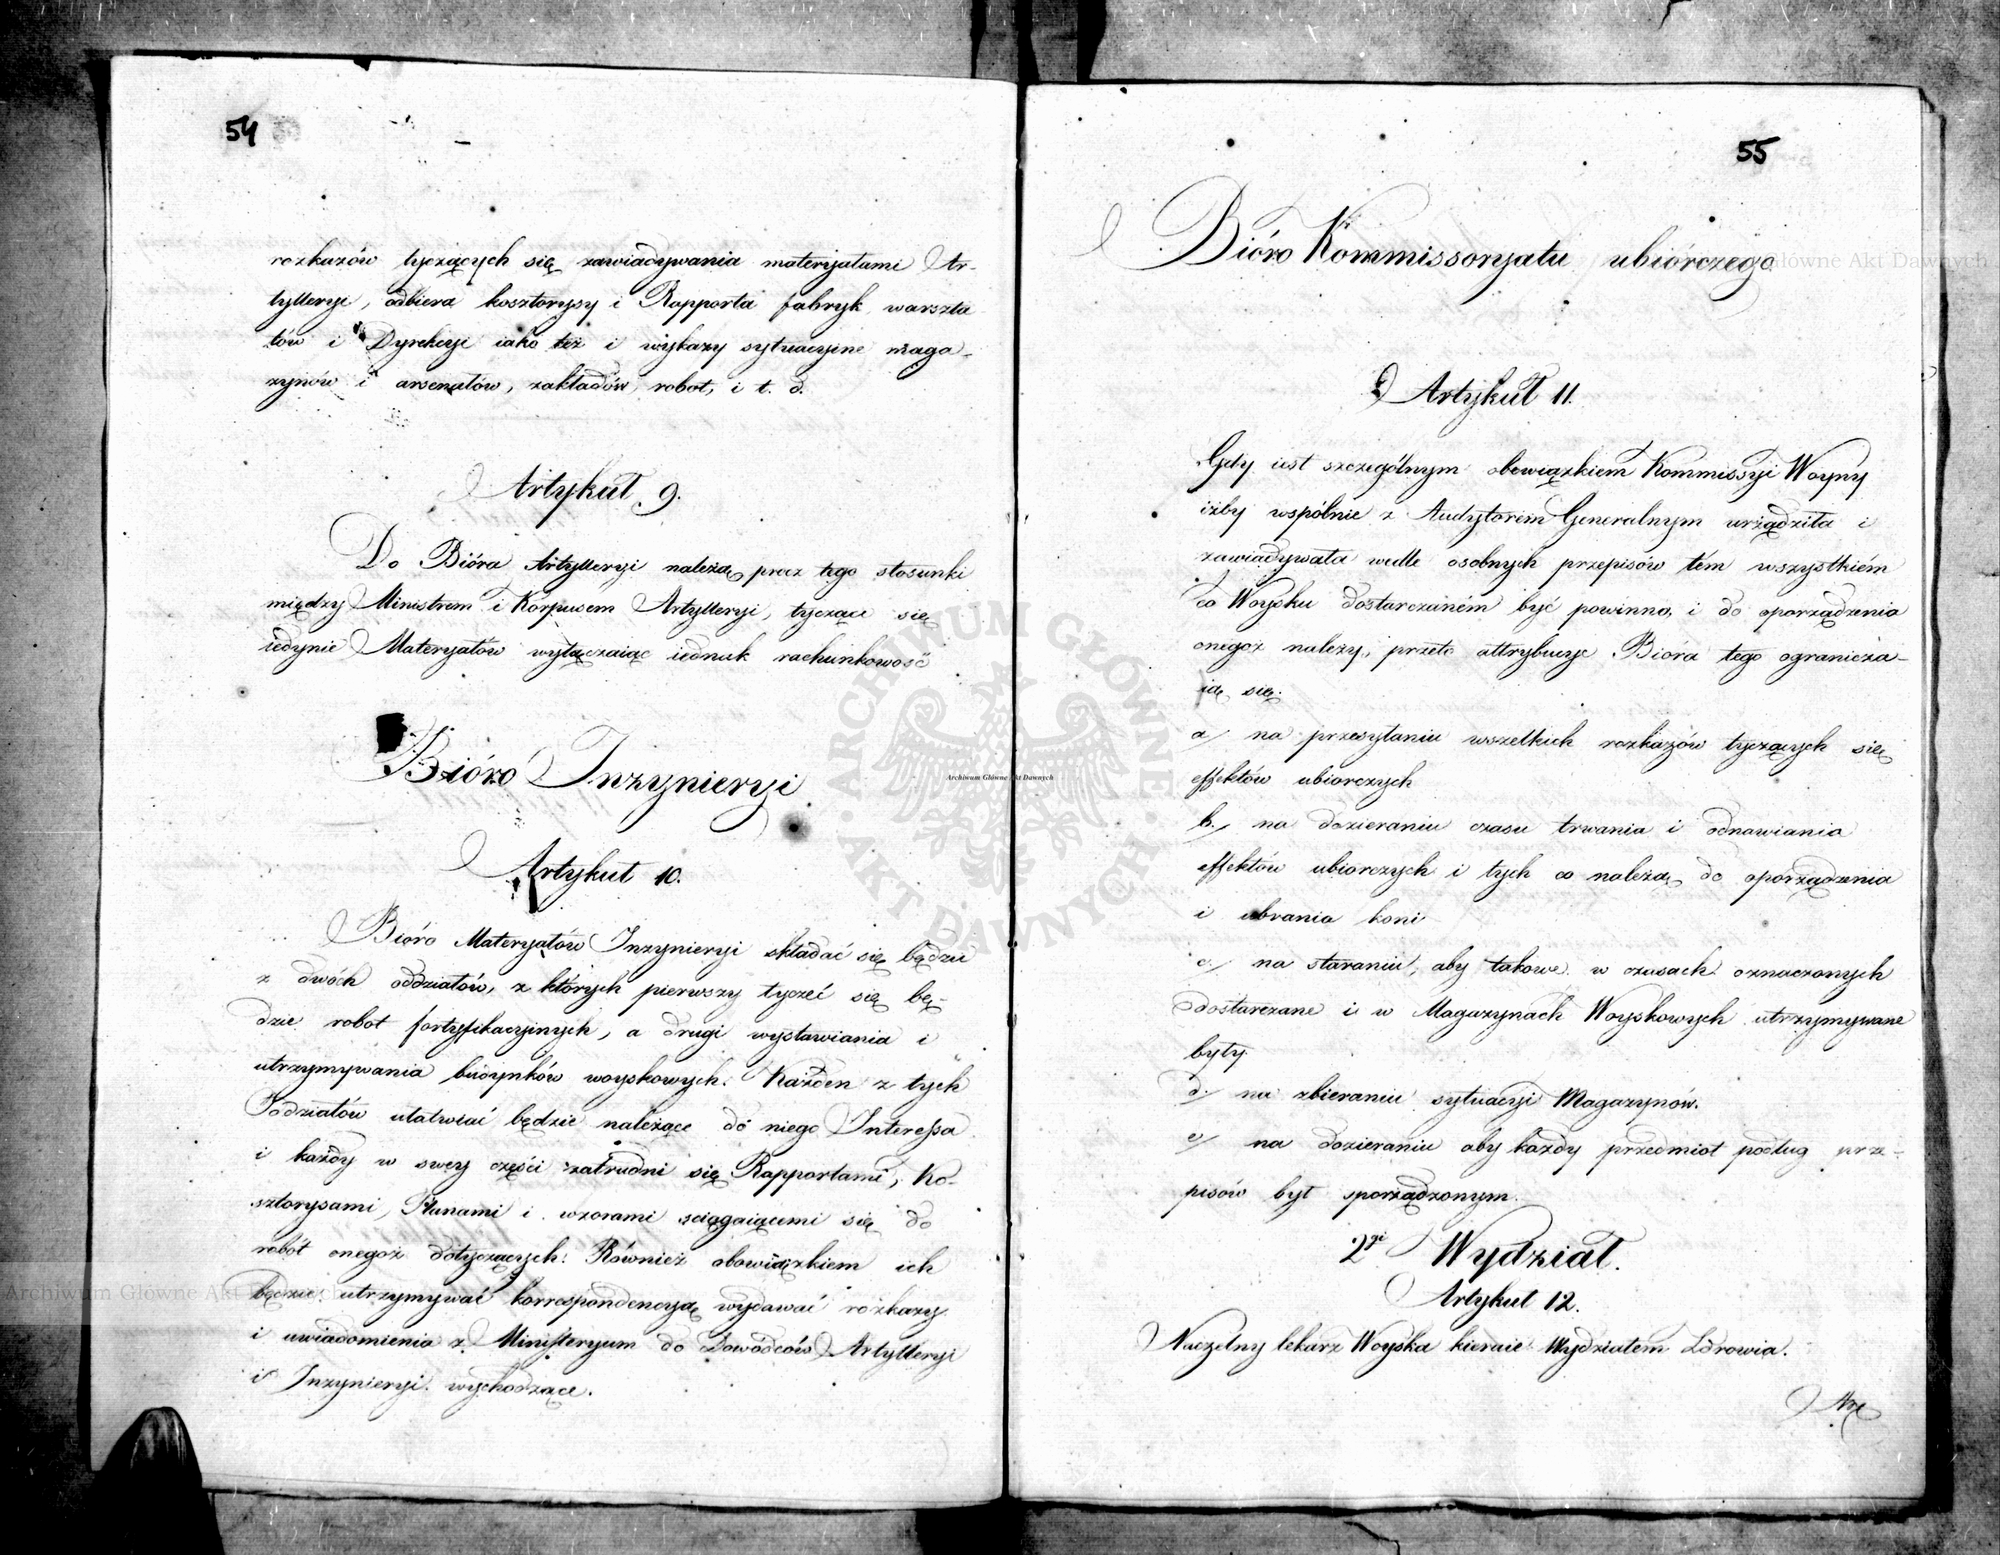 54
rozkazów tyczących się zawiadywania materyałami Ar-
tylleryi, odbiera kosztorysy i Rapporta fabryk warszta
tów i Dyrekcyi iako też i wykazy sytuacyine maga-
zynów i arsenałów, zakładów, robot, i t. d.
Artykuł 9.
Do Bióra Artylleryi należą, procz tego stosunki
między Ministrem i Korpusem Artylleryi, tyczące się
iedynie Materyałów wyłączaiąc iednak rachunkowość
Bióro Inżynieryi
Artykuł 10.
Bióro Materyałów Inżynieryi składać się będzie
z dwóch oddziałów, z których pierwszy tyczeć się bę-
dzie robot fortyfikacyinych, a drugi wystawiania i
utrzymywania budynków woyskowych. Każden z tych
Oddziałów ułatwiać będzie należące do niego Interessa
i każdy w swey części zatrudni się Rapportami, Ko-
sztorysami, Planami i wzorami sciągaiącemi się do
robót onegoż dotyczących. Również obowiązkiem ich
będzie utrzymywać korrespondencyą, wydawać rozkazy
i uwiadomienia z Ministeryum do Dowódców Artylleryi
i Inżynieryi wychodzące.
55
Bióro Kommissoryatu ubiórczego
Artykuł 11.
Gdy iest szczególnym obowiązkiem Kommissyi Woyny
iżby wspólnie z Audytorem Generalnym urządziła i
zawiadywała wedle osobnych przepisów tém wszystkiém
co Woysku dostarczoném być powinno, i do oporządzenia
onegoż należy, przeto attrybucye Bióra tego ogranicza-
ią się.
a/ na przesyłaniu wszelkich rozkazów tyczących się
effektów ubiorczych
b./ na dozieraniu czasu trwania i odnawiania
effektów ubiorczych i tych co należą do oporządzenia
i ubrania koni
c/ na staraniu, aby takowe w czasach oznaczonych
dostarczane i w Magazynach Woyskowych utrzymywane
były
d/ na zbieraniu sytuacyi Magazynów.
e/ na dozieraniu aby każdy przedmiot podług prze-
pisów był sporządzonym.
2gi Wydział.
Artykuł 12.
Naczelny lekarz Woyska kieruie Wydziałem Zdrowia.
Archiwum Główne Akt Dawnych